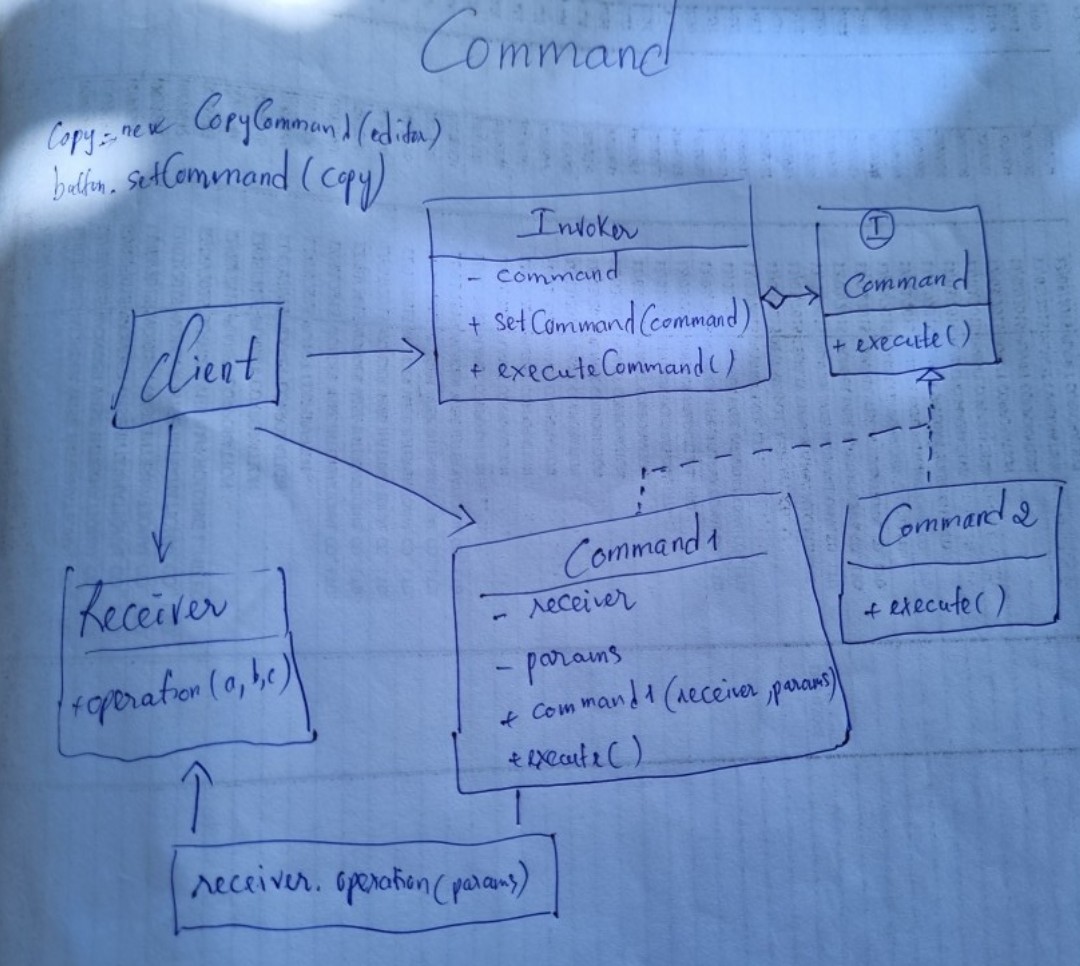 Command
Copy = new CopyCommand(editor)
button. setCommand (copy)
Invoker
- command
+ setCommand(command)
+ executeCommand()
I
Command
+ execute()
Client
Receiver
+operation(a,b,c)
Command1
- receiver
- params
+ command1(receiver,params)
+execute()
Command2
+ execute()
receiver. operation(params)